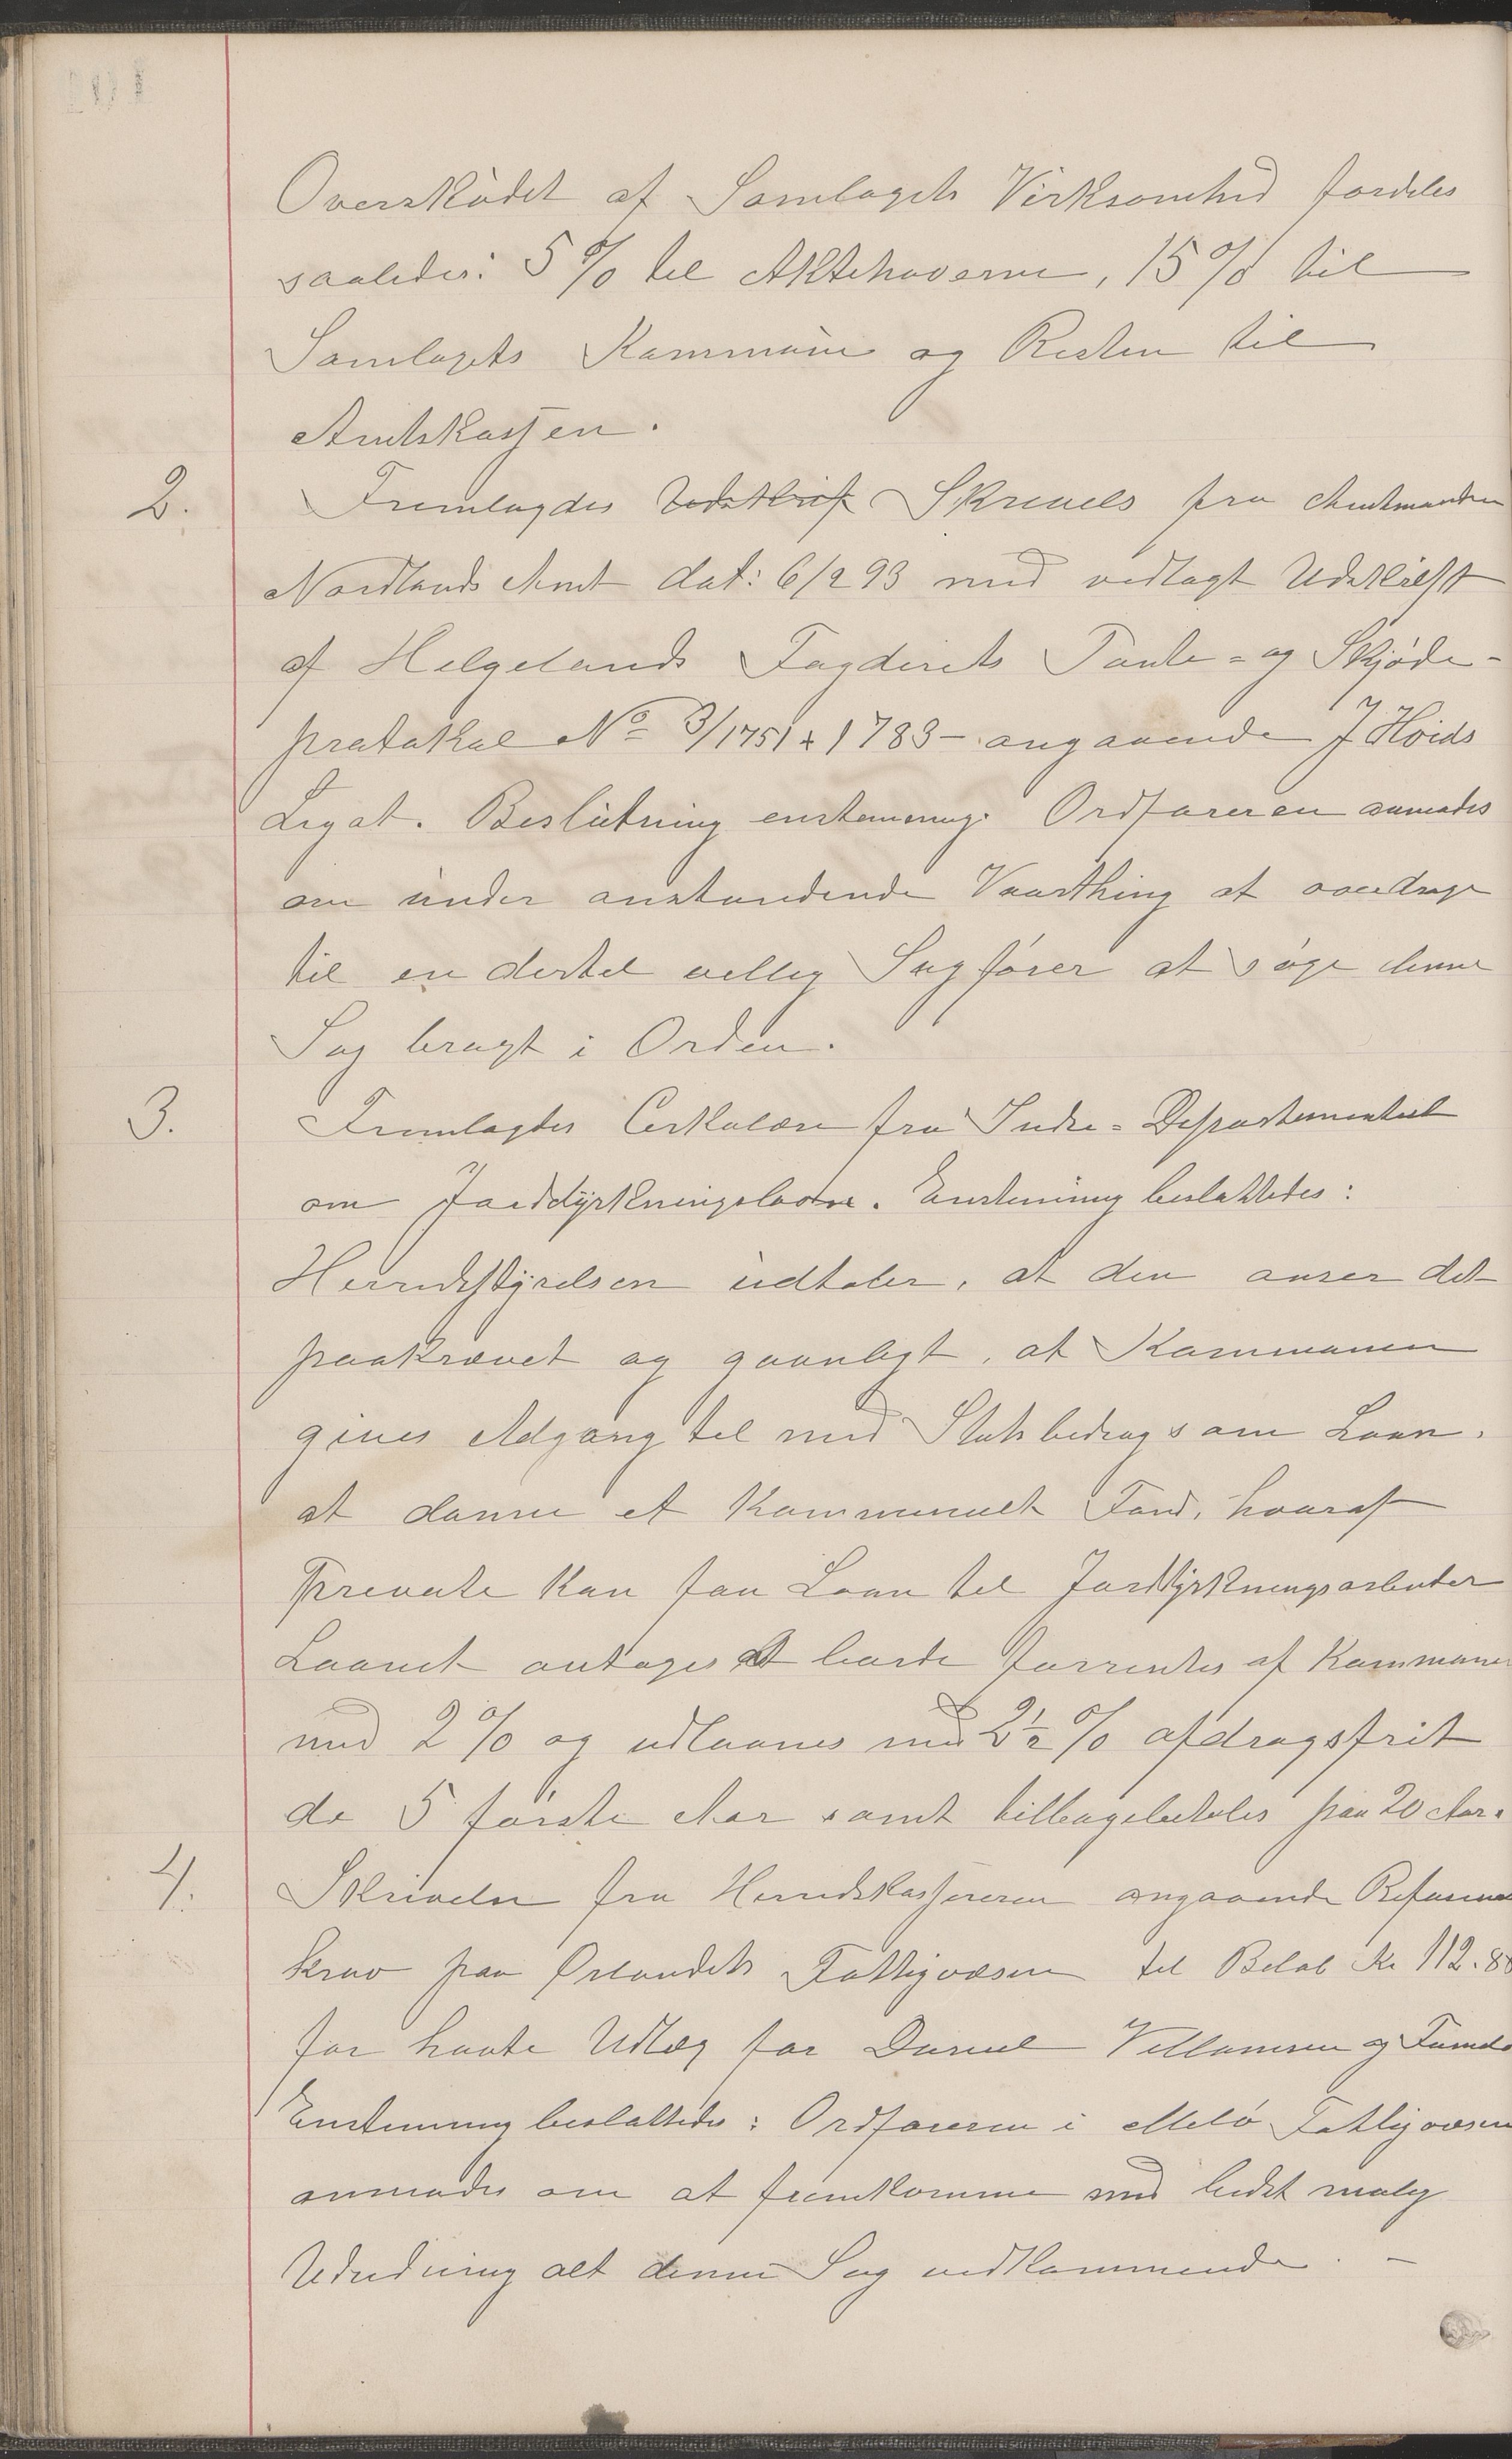 Overskůdet af Samlagets Virksomhed fordeles
saaledes: 5 % til Aktiehaverne, 15 % til
Samlagets Kommune og Resten til
Amtskassen.
2. Fremlagdes Udskrift Skrivels fra Amtmanden
Nordlands Amt dat: 6/2 93 med vedlagt Udskrift
af Helgelands Fogderets Pante- og Skjøde-
protokol No 3/1751 + 1783 - angaaende J Høids
Legat. Beslutning enstemmig. Ordføreren anmodes
om under anstundende Vaarthing at overdrage
til en dertel villig Sagfører at søge denne
Sag bragt i Orden.
3. Fremlagdes Cirkulære fra Indre-Departementet
om Jorddyrkningslaane. Enstemmig besluttedes:
Herredsstyrelsen udtaler, at den anser det
paakrævet og gavnligt, at Kommunen
gives Adgang til med Statsbidrag som Laan,
at danne et kommunalt Fond, hvoraf
Private kan faa Laan til Jorddyrkningsarbeider
Laanet antages at burde forrentes af Kommunen
med 2 % og udlaanes med 2½ % afdragsfrit
de 5 første Aar samt tilbagebetales paa 20 Aar.
4. Skrivelse fra Herredskassereren angaaende Refusions
krav paa Ørlandets Fattigvæsen til Beløb Kr 112.88
for havte Udlæg for Daniel Villumsen og Familie
Enstemmig besluttedes: Ordføreren i Melø Fattigvæsen
anmodes om at fremkomme med bedst mulig
Udredning alt denne Sag vedkommende. -